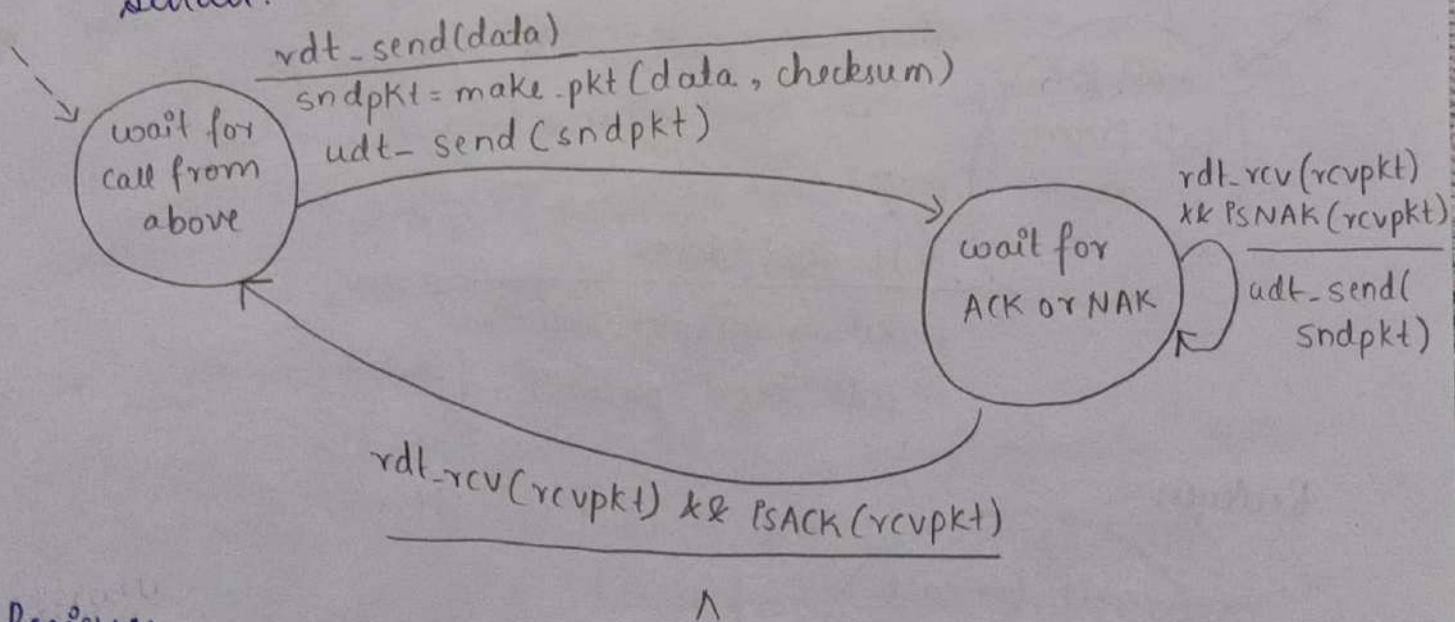 rdt_send(data)
sndpkt = make.pkt(data, checksum)
udt_ send (sndpkt)
wait for
call from
above
wait for
ACK or NAK
rdt_rcv(rcvpkt)
&& isNAK(rcvpkt)
udt_send(
sndpkt)
rdt_rcv(rcvpkt) && isACK(rcvpkt)
Λ